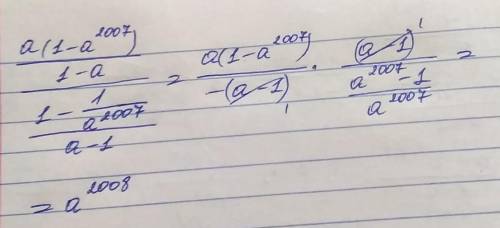 \frac{\frac{a(1-a^{2007})}{1-a}}{\frac{1-\frac{1}{a^{2007}}}{a-1}} = \frac{a(1-a^{2007})}{-(a-1)_1} \cdot \frac{(a-1)^1}{\frac{a^{2007}-1}{a^{2007}}} =
= a^{2008}